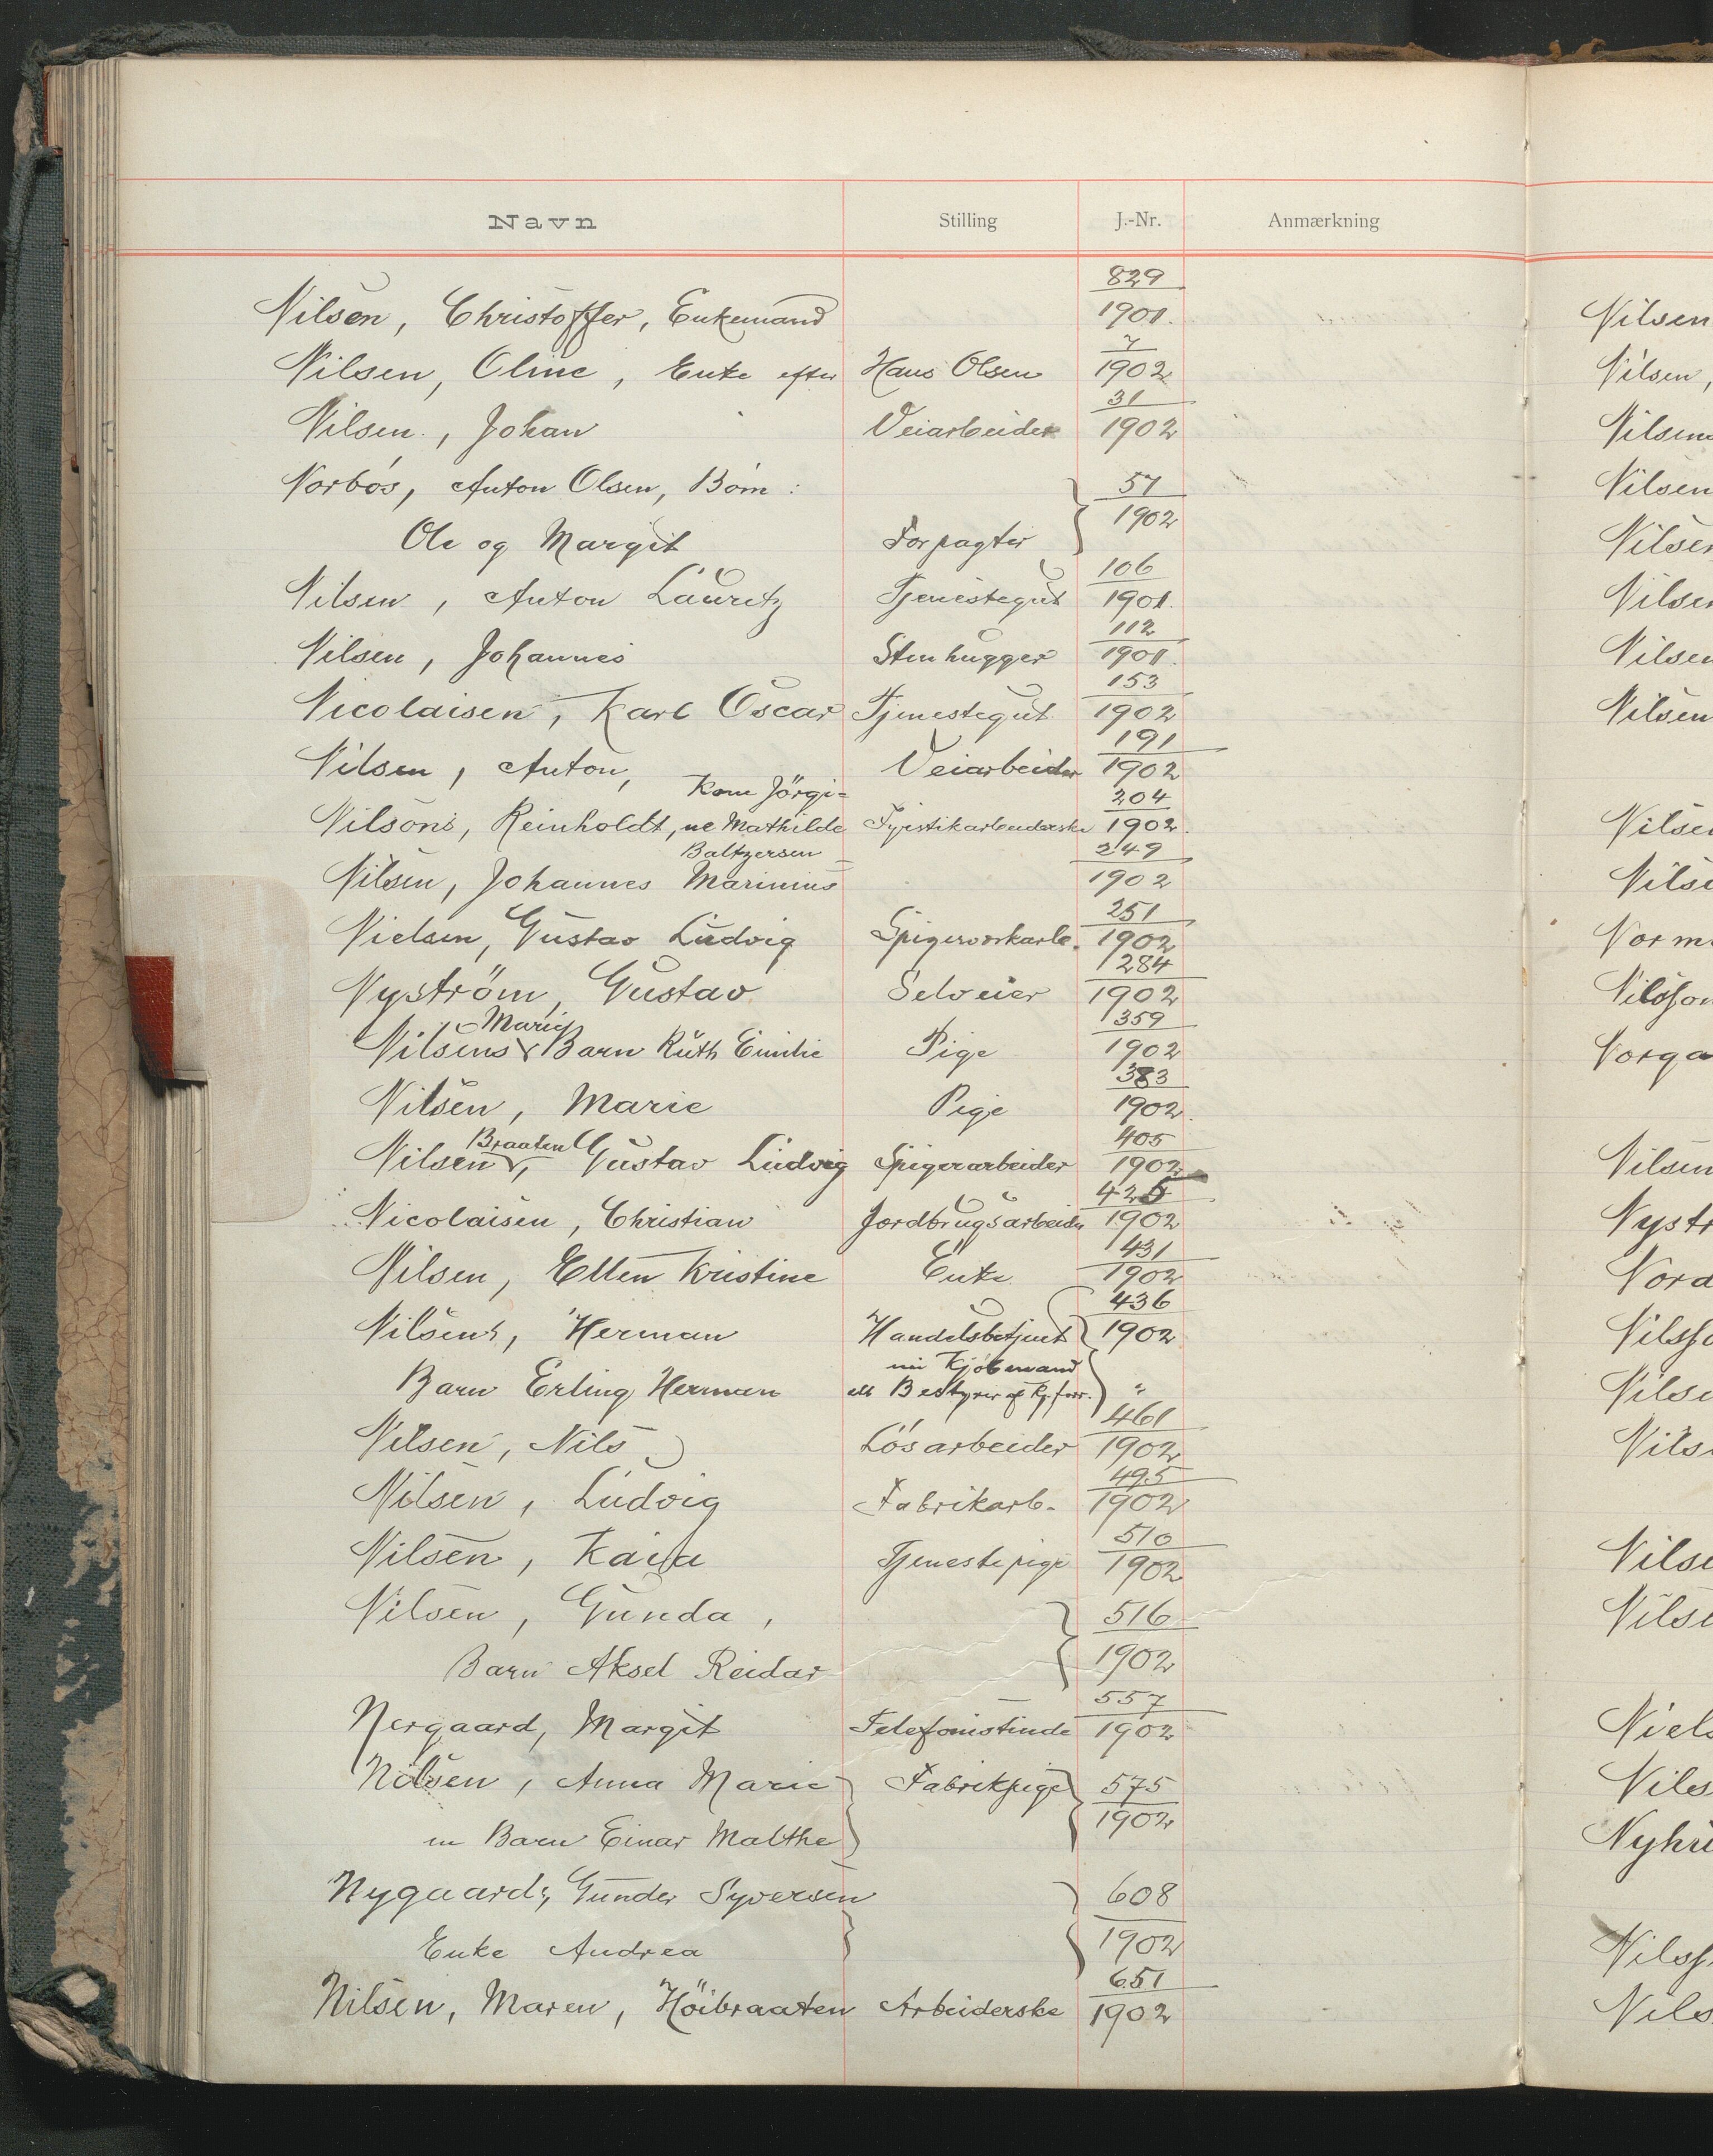 Navn Stilling J.-Nr. Anmærkning
829
Nilsen, Christoffer, Enkemand 1901.
7
Nilsen, Oline, Enke efter Hans Olsen 1902
31
Nilsen, Johan Veiarbeider 1902
Norbós, Anton Olsen, Börn: 57
1902
Ole og Margit Forpagter
106
Nilsen, Anton Lauritz Tjenestegut 1901.
112
Nilsen, Johannes Stenhugger 1901.
153
Nicolaisen, Karl Oscar Tjenestegut 1902
191
Nilsen, Anton, Veiarbeider 1902
Kone Jörgi= 204
Nilsens, Reinholdt, ne Mathilde Fyrstikarbeiderske 1902.
Baltzersen 249
Nilsen, Johannes Marinius 1902
251
Nielsen, Gustav Ludvig Spigerverkarb. 1902
284
Nyström, Gustav Selveier 1902
Marie 359
Nilsens Barn Ruth Emilie Pige 1902
383
Nilsen, Marie Pige 1902.
Braaten 405
Nilsen, Gustav Ludvig Spigerarbeider 1902
425
Nicolaisen, Christian Jordbrugsarbeider 1902
431
Nilsen, Ellen Kristine Enke 1902
436
Nilsens, Herman Handelsbetjent 1902
nu Kjöbmand
Barn Erling Herman ell Bestyrer af Kj.forr. "
461
Nilsen, Nils Lösarbeider 1902
495
Nilsen, Ludvig Fabrikarb. 1902
510
Nilsen, Kaia Tjenestepige 1902
Nilsen, Gunda, 516
Barn Aksel Reidar 1902
557
Nergaard, Margit Telefonistinde 1902
Nilsen, Anna Marie Fabrikpige 575
1902
m Barn Einar Malthe
Nygaards, Gunder Syversen 608
Enke Andrea 1902
651
Nilsen, Maren, Höibraaten Arbeiderske 1902